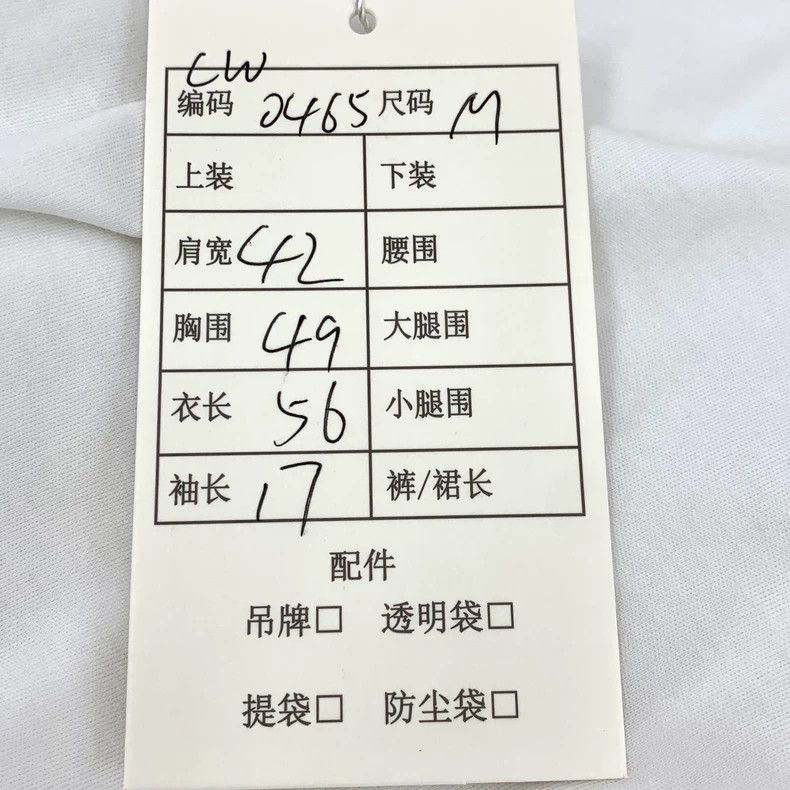 CW
编码 0465 尺码 M
上装 下装
肩宽 42 腰围
胸围 49 大腿围
衣长 56 小腿围
袖长 17 裤/裙长
配件
吊牌□ 透明袋□
提袋□ 防尘袋□